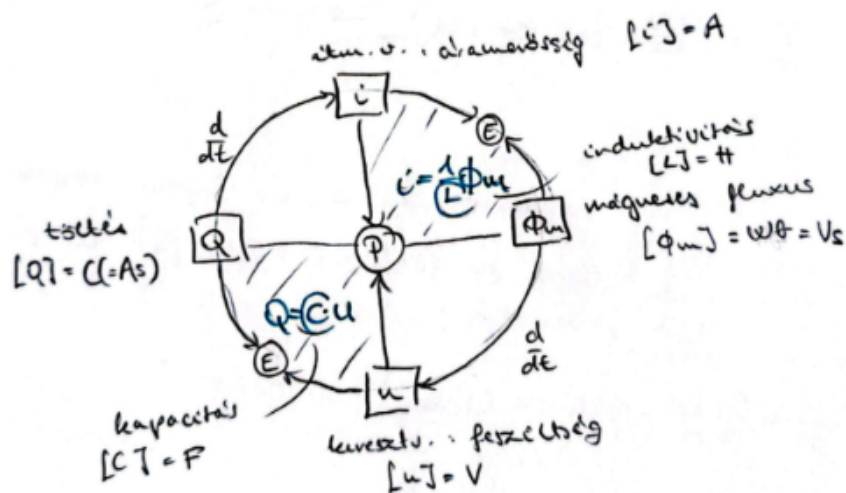 átm. v. : áramerősség [i] = A
i
d/dt
E
i = 1/L Φm
induktivitás
[L] = H
Q
P
Φm
mágneses fluxus
[Φm] = Wb = Vs
töltés
[Q] = C (= As)
Q = C·u
E
u
d/dt
kapacitás
[C] = F
keresztv. : feszültség
[u] = V